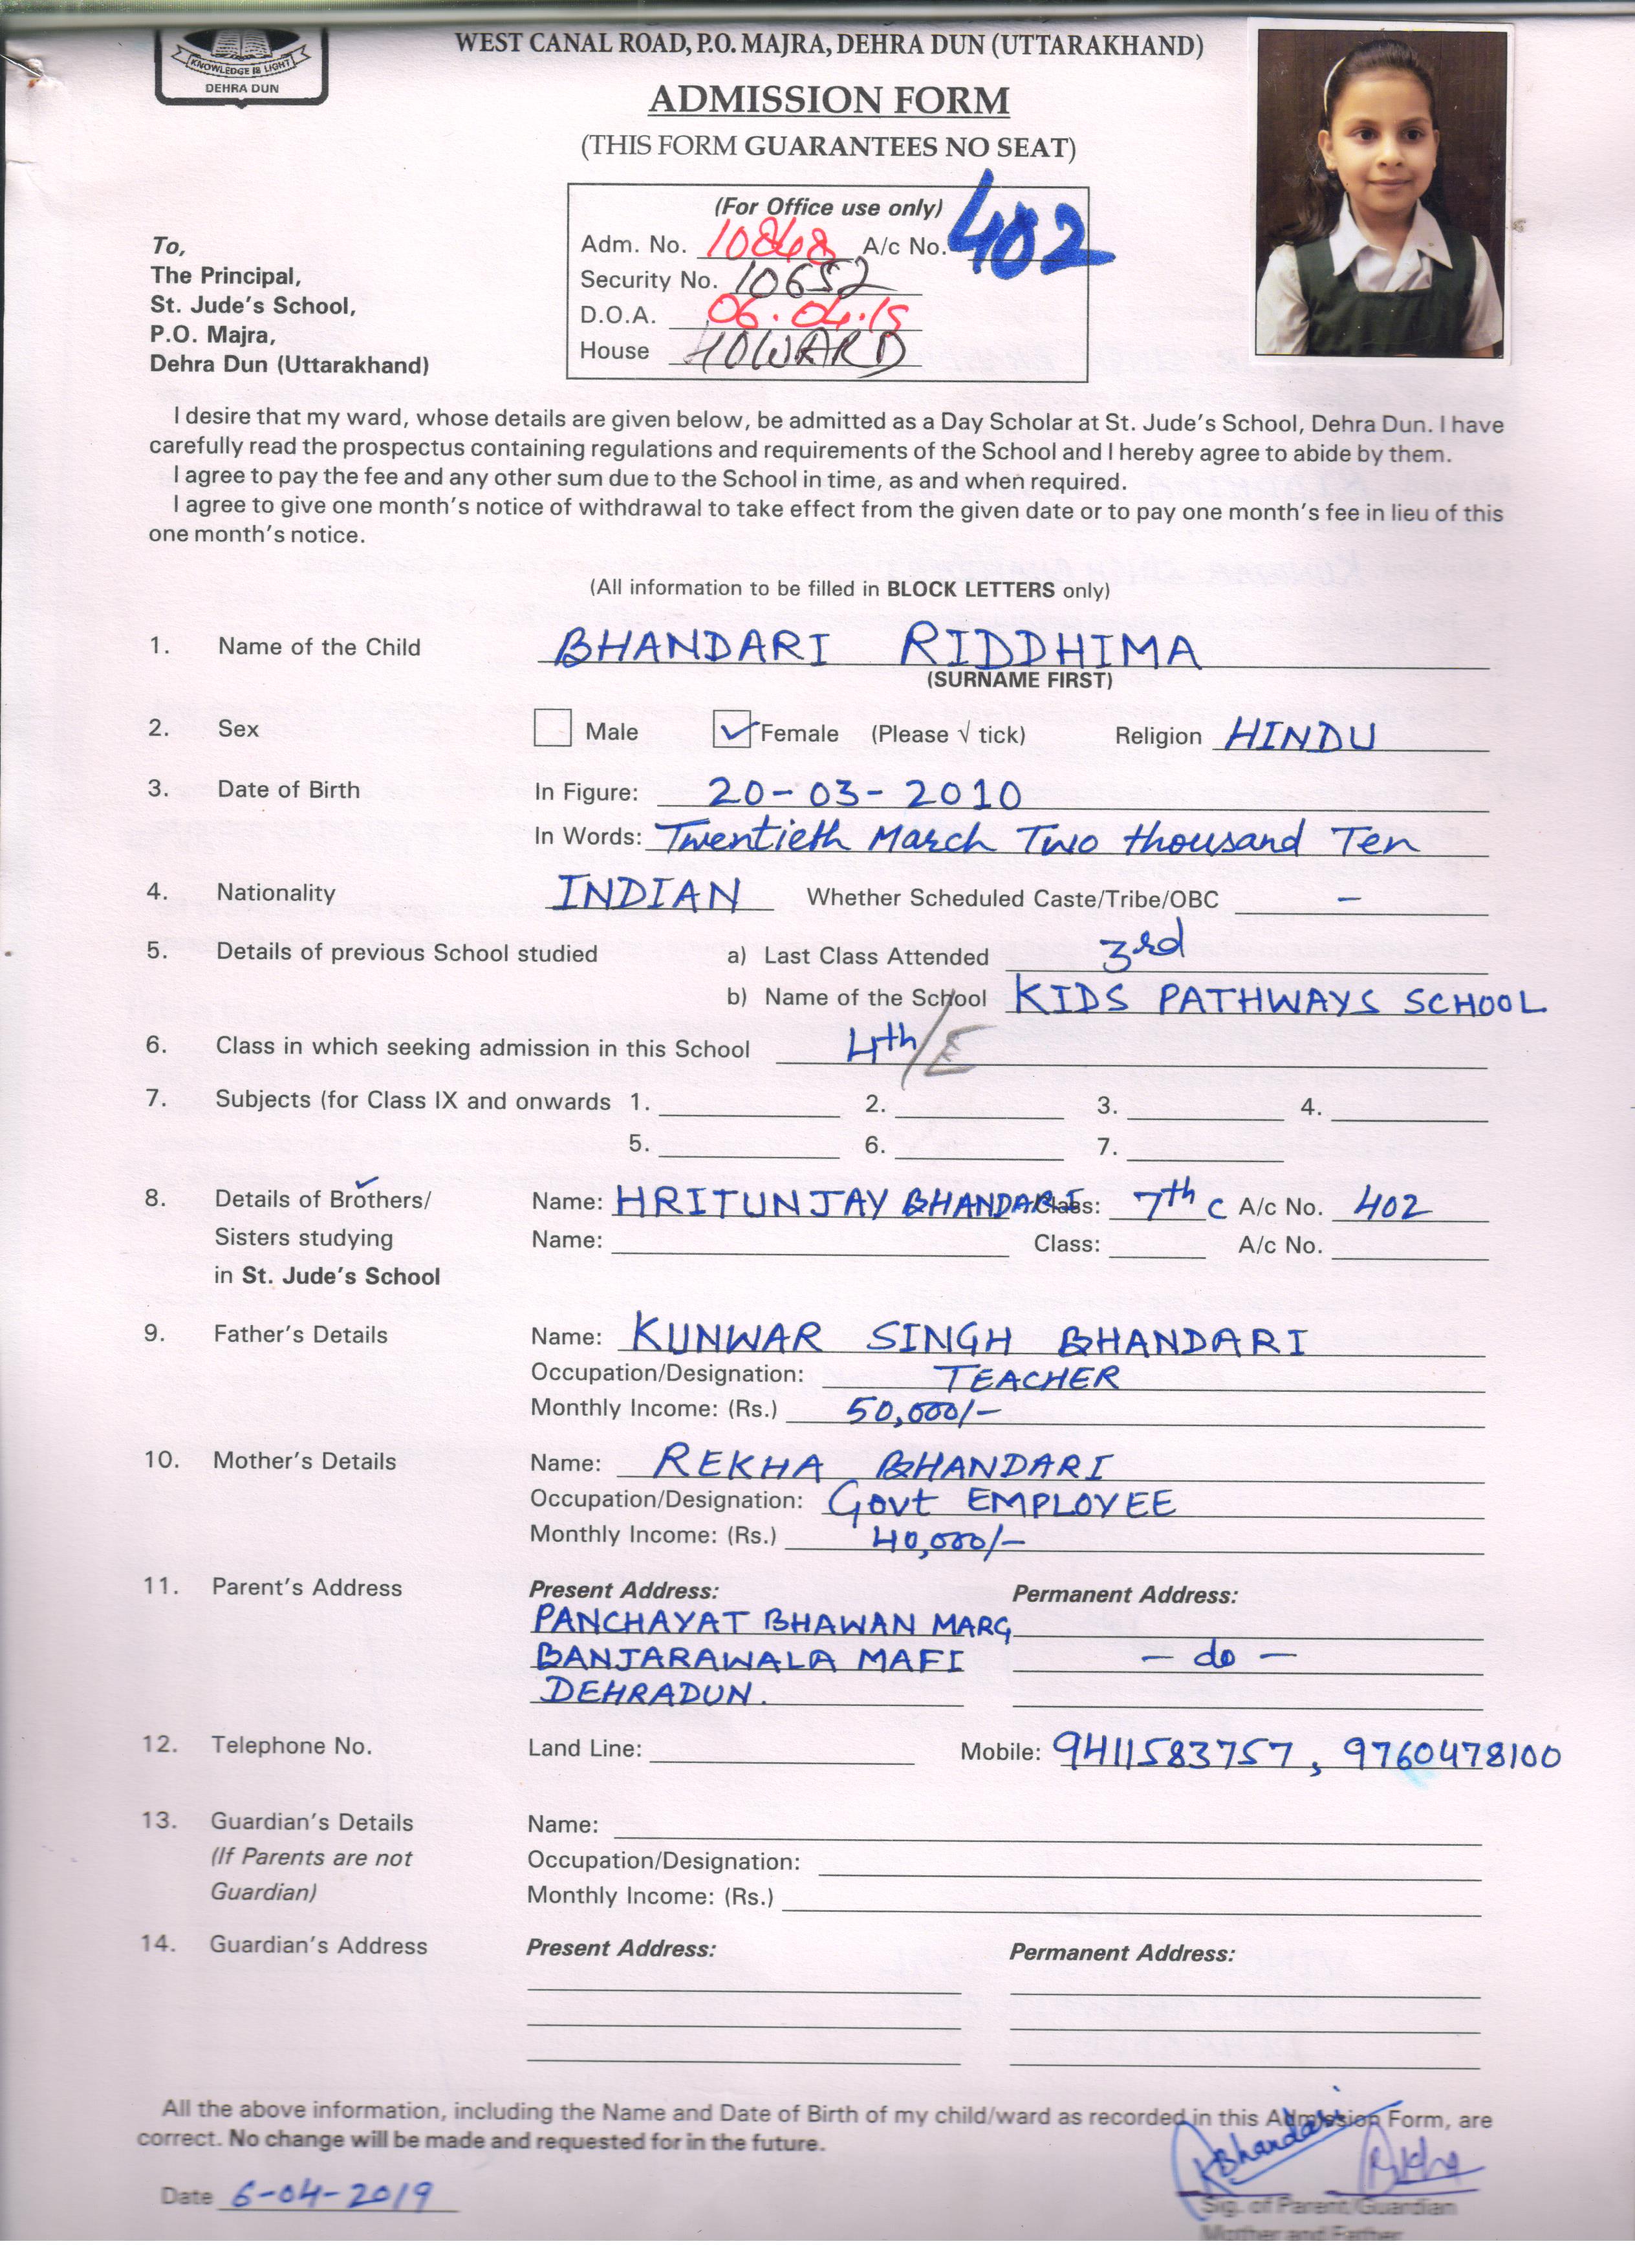 KNOWLEDGE IS LIGHT
DEHRA DUN
WEST CANAL ROAD, P.O. MAJRA, DEHRA DUN (UTTARAKHAND)
ADMISSION FORM
(THIS FORM GUARANTEES NO SEAT)
(For Office use only)
Adm. No. 10848 A/c No. 402
Security No. 10652
D.O.A. 06.04.19
House HOWARD
To,
The Principal,
St. Jude's School,
P.O. Majra,
Dehra Dun (Uttarakhand)
I desire that my ward, whose details are given below, be admitted as a Day Scholar at St. Jude's School, Dehra Dun. I have
carefully read the prospectus containing regulations and requirements of the School and I hereby agree to abide by them.
I agree to pay the fee and any other sum due to the School in time, as and when required.
I agree to give one month's notice of withdrawal to take effect from the given date or to pay one month's fee in lieu of this
one month's notice.
(All information to be filled in BLOCK LETTERS only)
1. Name of the Child BHANDARI RIDDHIMA
(SURNAME FIRST)
2. Sex Male ✓ Female (Please √ tick) Religion HINDU
3. Date of Birth In Figure: 20-03-2010
In Words: Twentieth March Two thousand Ten
4. Nationality INDIAN Whether Scheduled Caste/Tribe/OBC –
5. Details of previous School studied a) Last Class Attended 3rd
b) Name of the School KIDS PATHWAYS SCHOOL
6. Class in which seeking admission in this School 4th/E
7. Subjects (for Class IX and onwards 1. 2. 3. 4.
5. 6. 7.
8. Details of Brothers/ Name: HRITUNJAY BHANDARI Class: 7th C A/c No. 402
Sisters studying Name: Class: A/c No.
in St. Jude's School
9. Father's Details Name: KUNWAR SINGH BHANDARI
Occupation/Designation: TEACHER
Monthly Income: (Rs.) 50,000/-
10. Mother's Details Name: REKHA BHANDARI
Occupation/Designation: Govt EMPLOYEE
Monthly Income: (Rs.) 40,000/-
11. Parent's Address Present Address: Permanent Address:
PANCHAYAT BHAWAN MARG
BANJARAWALA MAFI – do –
DEHRADUN.
12. Telephone No. Land Line: Mobile: 9411583757, 9760478100
13. Guardian's Details Name:
(If Parents are not Occupation/Designation:
Guardian) Monthly Income: (Rs.)
14. Guardian's Address Present Address: Permanent Address:
All the above information, including the Name and Date of Birth of my child/ward as recorded in this Admission Form, are
correct. No change will be made and requested for in the future.
KBhandari Rekha
Date 6-04-2019
Sig. of Parent/Guardian
Mother and Father